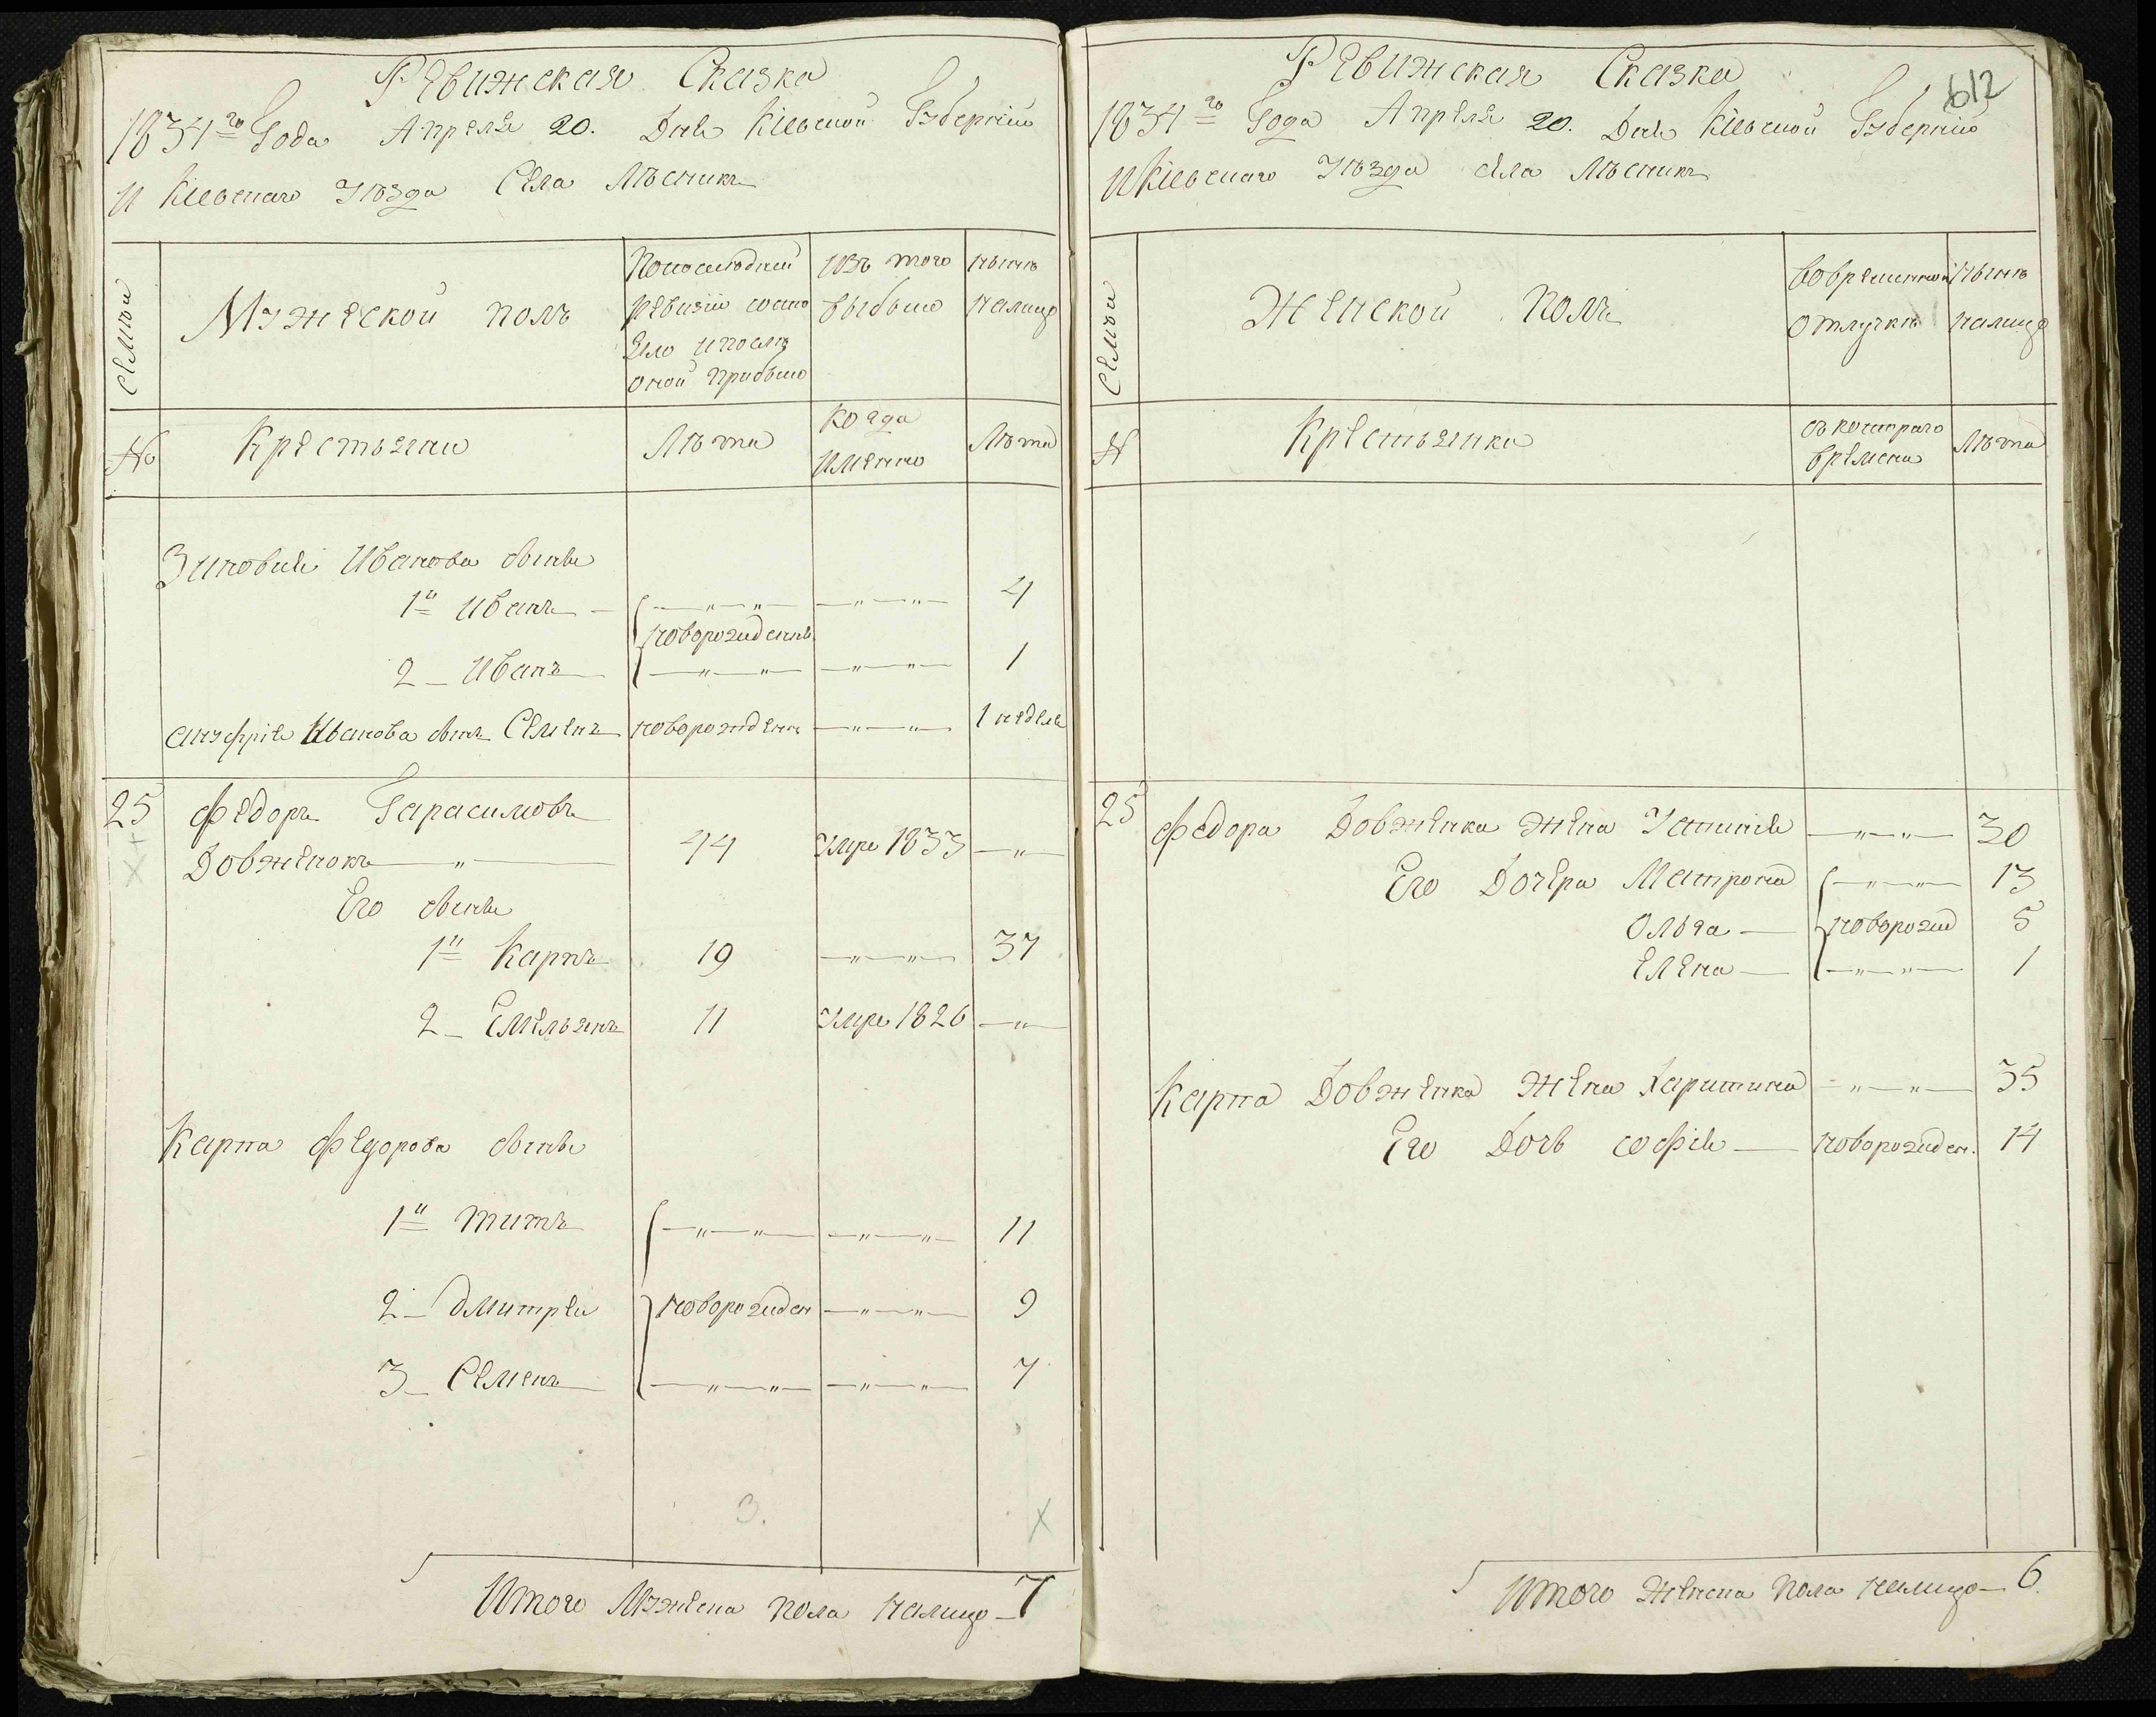 Ревижская Сказка
1834го Года Апреля 20. Дня Кіевской Губерніи
И Кіевскаго Уѣзда Села Лѣсникъ
Семьи
Мужеской полъ
Попослѣдней ревизіи состояло ипослѣ оной прибыло
Изъ того выбыло
Нынѣ налицо
№
Крестьяни
Лѣта
Когда имянно
Лѣта
Зиновия Иванова сынъя
1й Иванъ — " — " — " — " 4
новорожденнъ
2 — Иванъ — " — " — " — " 1
Ануфрія Иванова сынъ Семенъ новорожденъ — " — " 1 неделя
25 Федоръ Гарасимовъ
Довженокъ — " — 44 Умре 1833 — "
Его сынъя
1й Карпъ 19 — " — " 37
2 — Емельянъ 11 Умре 1826 — "
Карпа Федорова сынъя
1й Титъ — " — " — " — " 11
2 — Дмитрей новорожден — " — " 9
3 — Семенъ — " — " — " — " 7
3.
Итого Мужеска пола налицо — 7
612
Ревижская Сказка
1834го Года Апреля 20. Дня Кіевской Губерніи
И Кіевскаго Уѣзда села Лѣсникъ
Семьи
Женской полъ
Вовременной отлучкѣ
Нынѣ налицо
№
Крестьянки
съ котораго времени
Лѣта
25 Федора Довженка жена Устиния — " — " 30
Его Дочера Матрона — " — " 13
Ольга — новорожд 5
Елена — " — " 1
Карпа Довженка жена Харитина — " — " 35
Его Дочь софія — новорожден. 14
Итого женска пола налицо — 6.